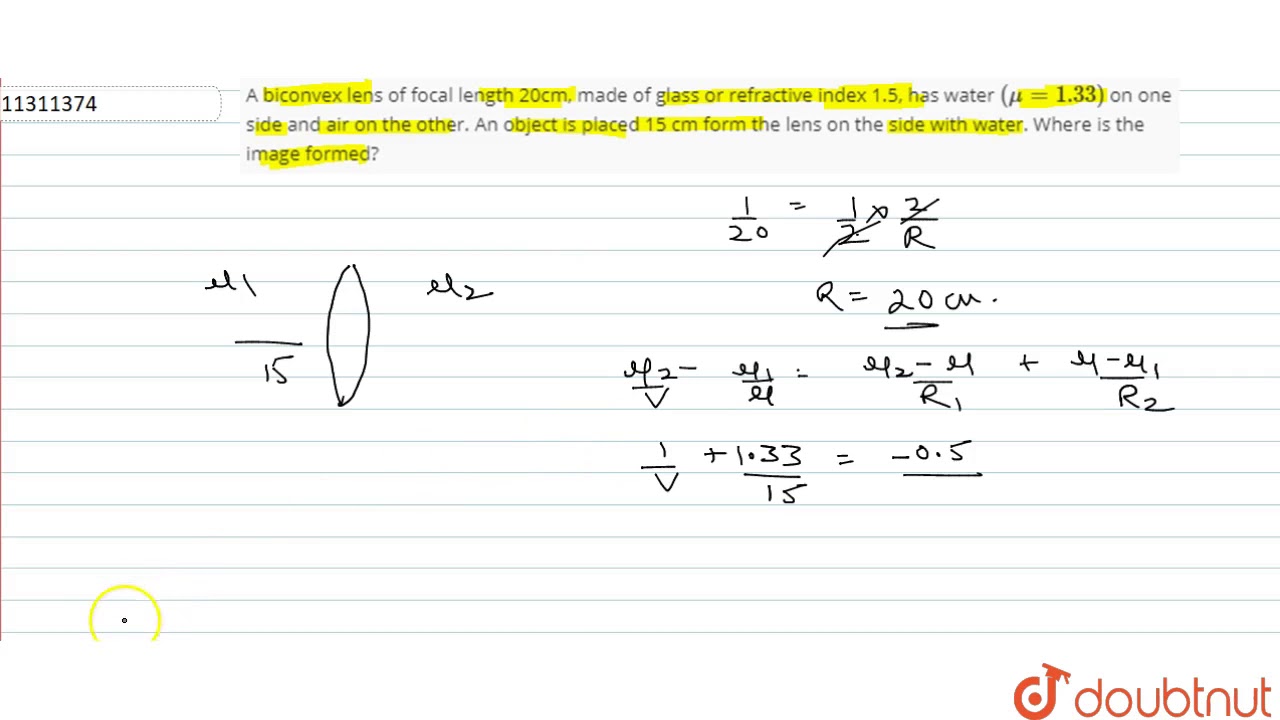 11311374
A biconvex lens of focal length 20cm, made of glass or refractive index 1.5, has water (μ = 1.33) on one
side and air on the other. An object is placed 15 cm form the lens on the side with water. Where is the
image formed?
1/20 = 1/2 × 2/R
μ1 μ2
R = 20 cm.
15
μ2/V - μ1/μ = μ2-μ/R1 + μ-μ1/R2
1/V + 1.33/15 = -0.5
doubtnut